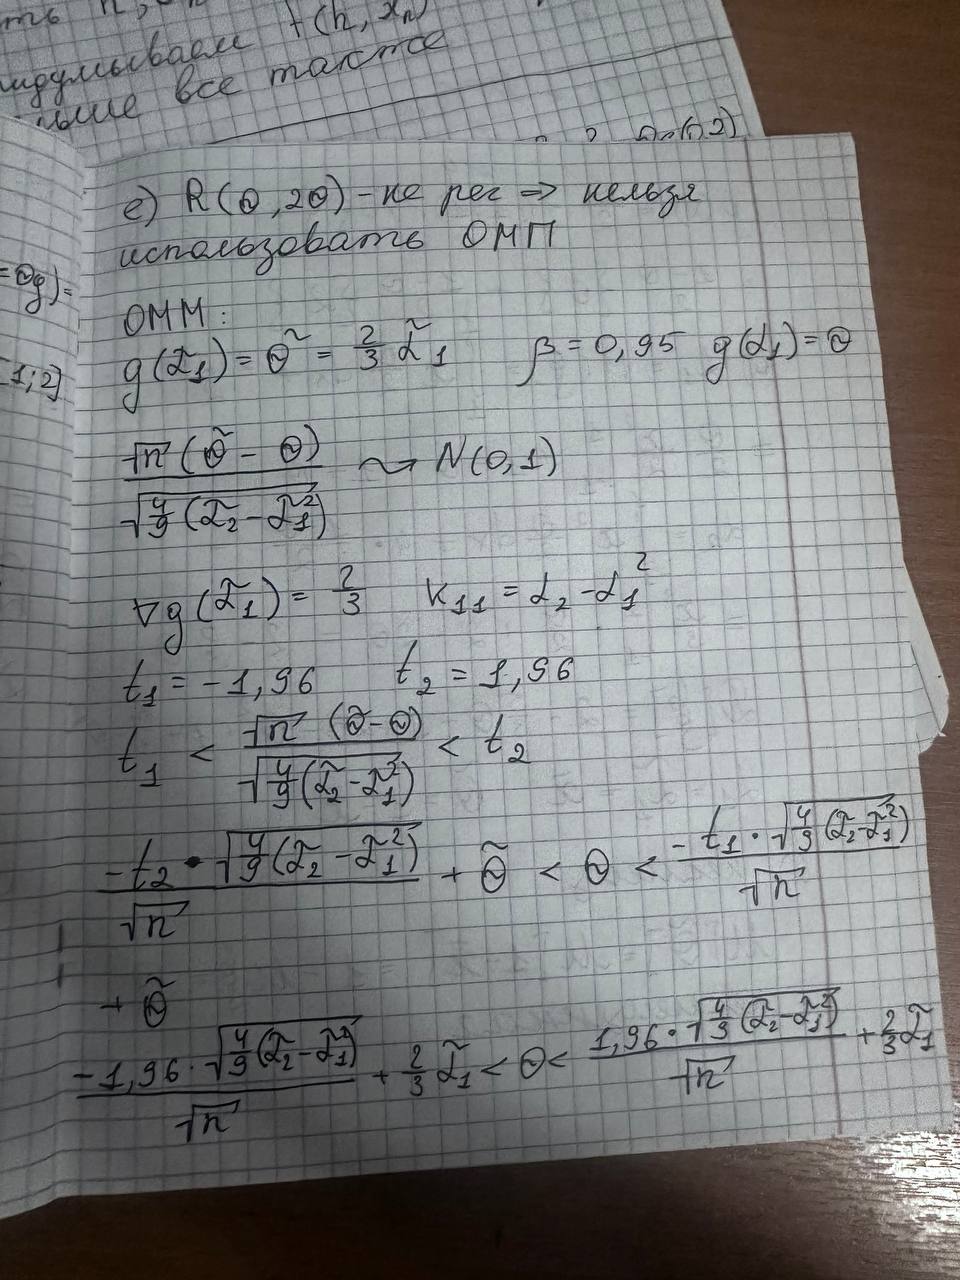 думываем f(h, xₙ)
все также
е) R(θ, 2θ) - не рег ⇒ нельзя
использовать ОМП
=θg)=
ОММ:
g(α̃₁) = θ̃ = 2/3 α̃₁ β = 0,95 g(α₁) = θ
1;2]
√n (θ̃ - θ) / √(4/9 (α̃₂ - α̃₁²)) ⇝ N(0,1)
∇g(α̃₁) = 2/3 K₁₁ = α₂ - α₁²
t₁ = -1,96 t₂ = 1,96
t₁ < √n (θ̃ - θ) / √(4/9 (α̃₂ - α̃₁²)) < t₂
-t₂ · √(4/9 (α̃₂ - α̃₁²)) / √n + θ̃ < θ < -t₁ · √(4/9 (α̃₂ - α̃₁²)) / √n
+ θ̃
-1,96 · √(4/9 (α̃₂ - α̃₁²)) / √n + 2/3 α̃₁ < θ < 1,96 · √(4/9 (α̃₂ - α̃₁²)) / √n + 2/3 α̃₁